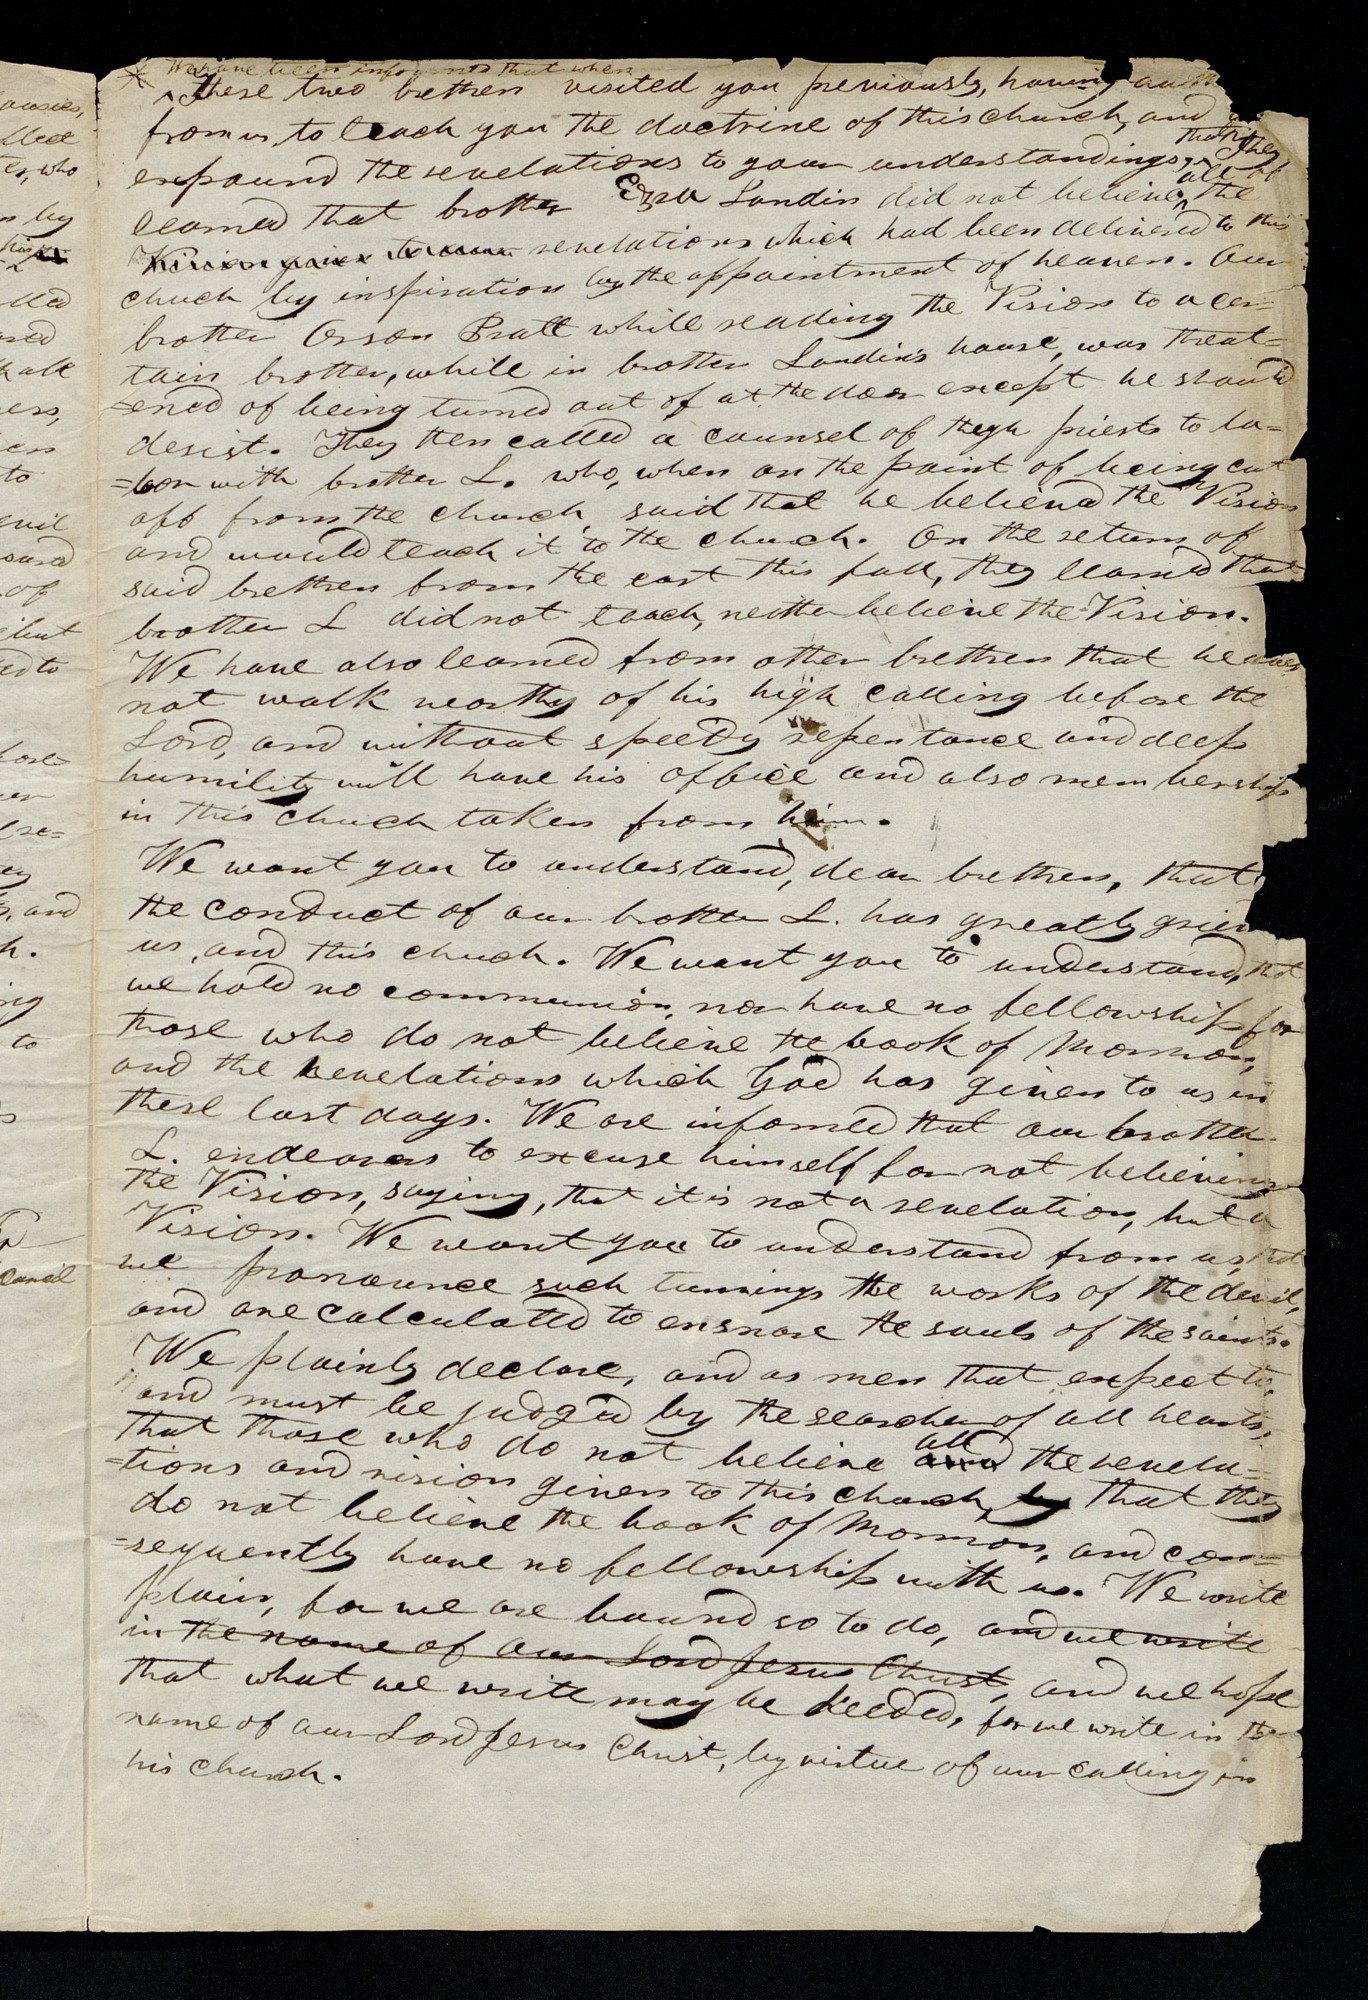 * We have been informed that when
These two brethren visited you previously, having auth
from us, to teach you the doctrine of this church, and
expound the revelations to your understandings, that they
learned that brother Ezra Landin did not believe all of the
revelations which had been delivered to this
chuch by inspiration by the appointment of heaven. Our
brother Orson Pratt while reading the Vision to a cer=
tain brother, while in brother Landin's house, was threat=
=ened of being turned out of at the door except he should
desist. They then called a counsel of high priests to la=
=bor with brother L. who, when on the point of being cut
off from the church, said that he believed the Vision
and would teach it to the church. On the return of
said brethren from the east this fall, they learned that
brother L did not teach, neither believe the Vision.
We have also learned from other brethren that he does
not walk worthy of his high calling before the
Lord, and without speedy repentance and deep
humility will have his office and also membership
in this chuch taken from him.
We want you to understand, dear brethren, that
the conduct of our brother L. has greatly griev
us, and this chuch. We want you to understand, that
we hold no communion, nor have no fellowship for
those who do not believe the book of Mormon,
and the revelations which God has given to us in
these last days. We are informed that our brother
L. endeavors to excuse himself for not believing
the Vision, saying, that it is not a revelation, but a
Vision. We want you to understand from us, that
we pronounce such turnings the works of the devil,
and are calculated to ensnare the souls of the saints.
We plainly declare, and as men that expect to,
and must be judged by the searcher of all hearts,
that those who do not believe all the revela=
=tions and vision given to this church, that they
do not believe the book of Mormon, and con=
=sequently have no fellowship with us. We write
plain, for we are bound so to do, and we write
in the name of our Lord Jesus Christ, and we hope
that what we write may be heeded, for we write in the
name of our Lord Jesus Christ, by virtue of our calling in
his church.